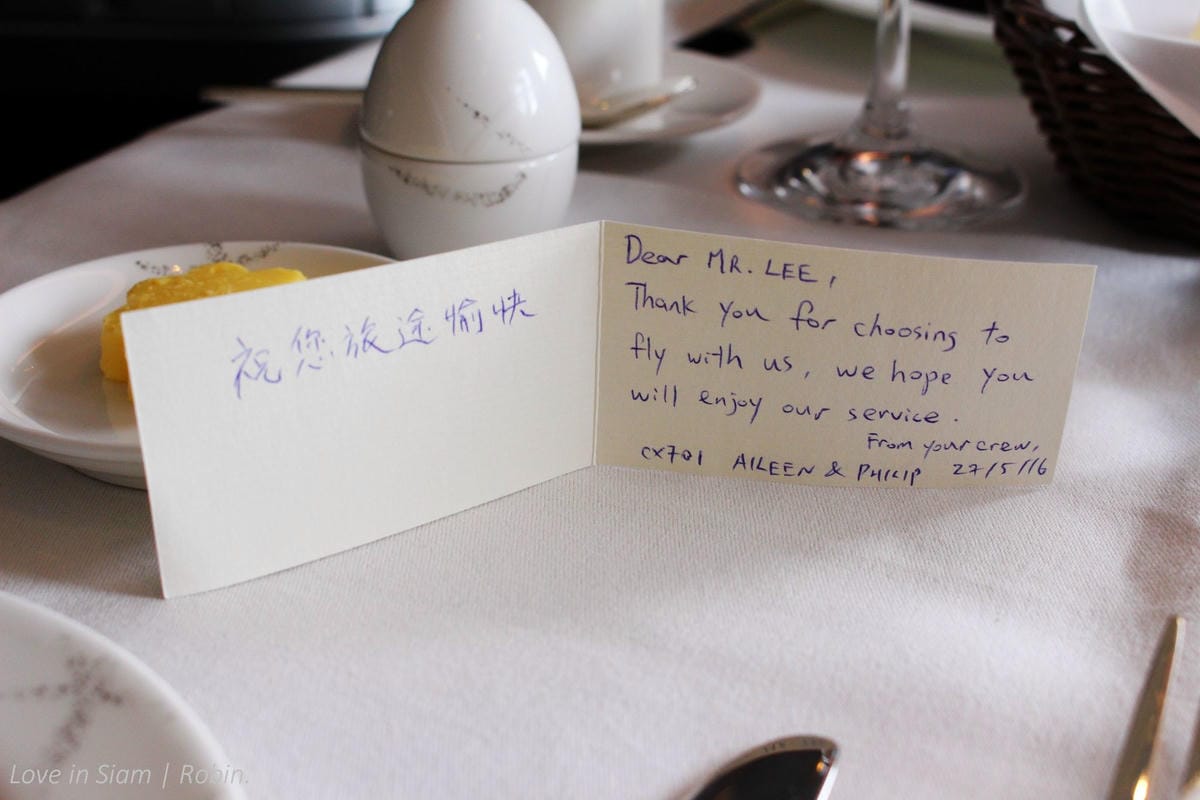 祝您旅途愉快
Dear MR. LEE,
Thank you for choosing to
fly with us, we hope you
will enjoy our service.
From your crew,
CX701 AILEEN & PHILIP 27/5/16
Love in Siam | Robin.